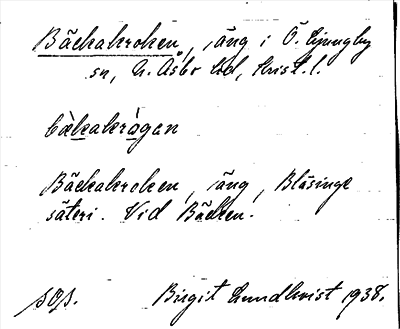 Bäckakroken, äng i Ö. Ljungby
sn, N. Åsbo hd, Krist. l.
bäkakrogan
Bäckakroken, äng, Blåsinge
säteri. Vid Bäcken.
Birgit Lundkvist 1938.